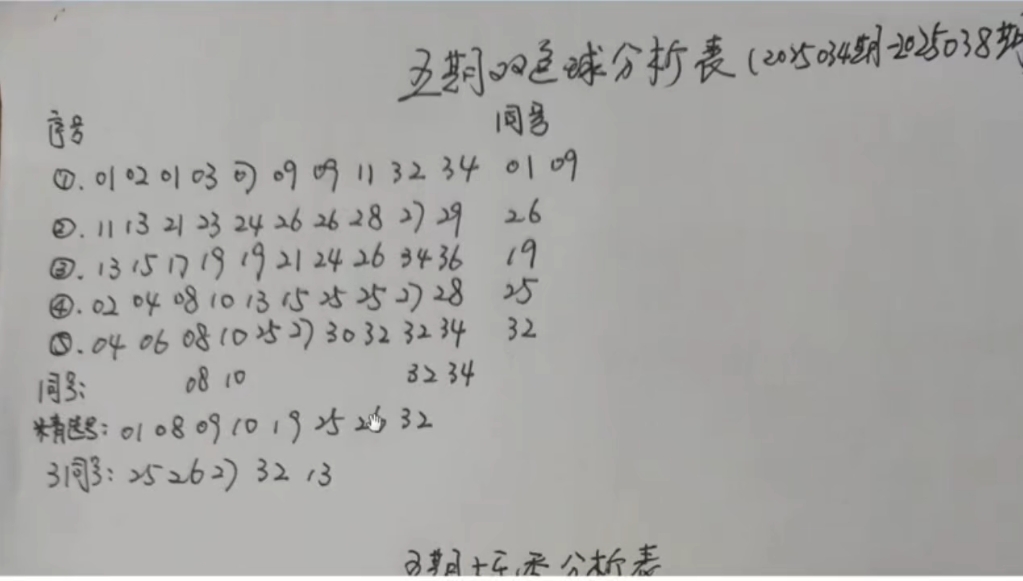 五期双色球分析表(2025034期-2025038期
序号 同号
①. 01 02 01 03 07 09 09 11 32 34 01 09
②. 11 13 21 23 24 26 26 28 27 29 26
③. 13 15 17 19 19 21 24 26 34 36 19
④. 02 04 08 10 13 15 25 25 27 28 25
⑤. 04 06 08 10 25 27 30 32 32 34 32
同号: 08 10 32 34
精选号: 01 08 09 10 19 25 26 32
3同号: 25 26 27 32 13
五期 分析表